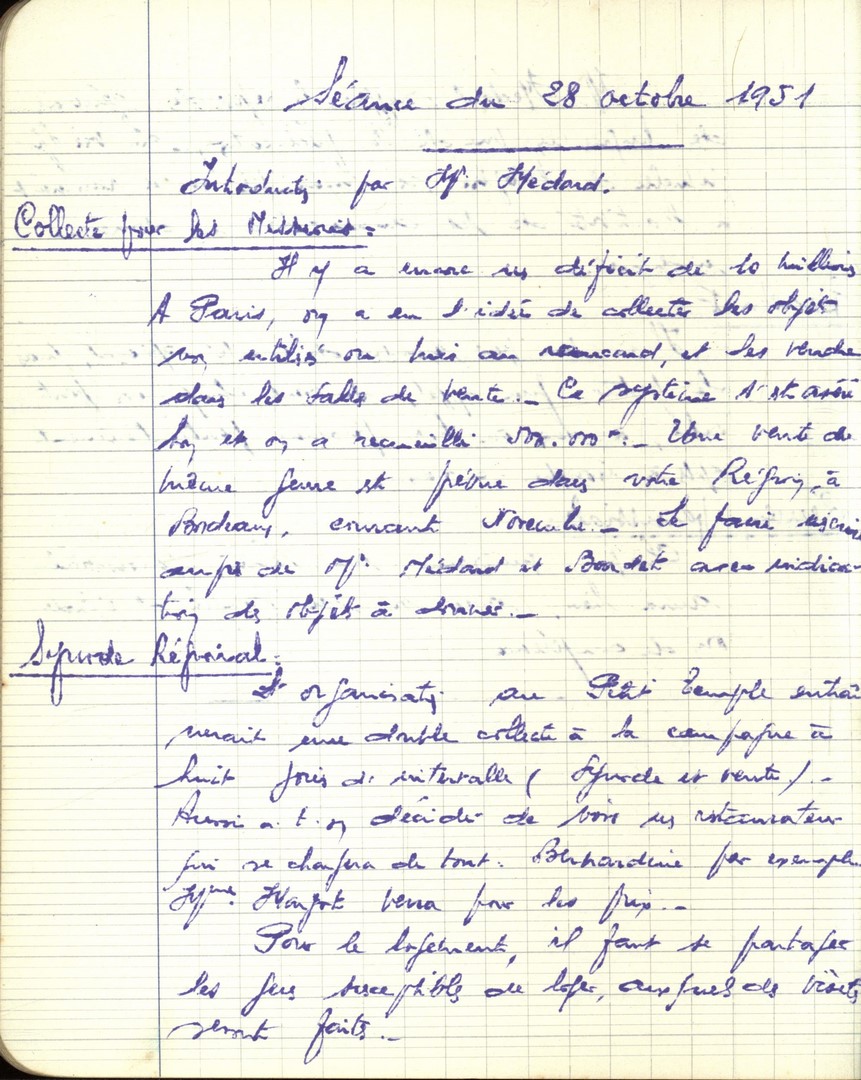 Séance du 28 octobre 1951
Introduction par Mr. Médard.
Collecte pour les Missions :
Il y a encore un déficit de 10 millions
A Paris, on a eu l'idée de collecter les objets
non utilisés ou mis au , et les vendre
dans les salles de vente. _ Ce système s'est avéré
bon et on a recueilli 500.000 F. _ Une vente de
même genre est prévue dans votre Région, à
Bordeaux, courant Novembre. _ Se faire
auprès de Mr. Médard et Bourdet avec indica-
tion des objets à donner. _
Synode Régional :
L'organisation au Petit Temple entraî
nerait une double collecte à la campagne à
huit jours d'intervalle (Synode et vente). _
Aussi a.t.on décidé de voir un restaurateur
qui se chargera de tout. Bernardine par exemple
Mme. verra pour les prix. _
Pour le logement, il faut se partager
les gens susceptibles de loger, auxquels des visites
seront faites. _